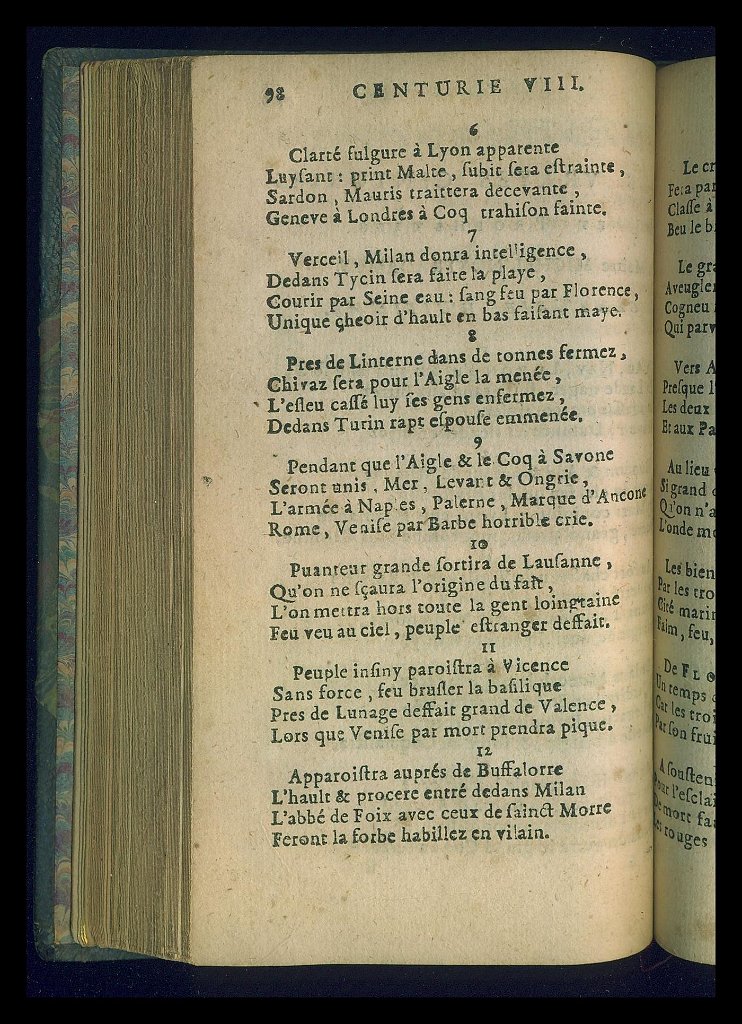 98 CENTURIE VIII.
6
Clarté fulgure à Lyon apparente
Luyſant : print Malte, ſubit ſera eſtrainte,
Sardon, Mauris traittera decevante,
Geneve à Londres à Coq trahiſon fainte.
7
Verceil, Milan donra intelligence,
Dedans Tycin ſera faite la playe,
Courir par Seine eau : ſang feu par Florence,
Unique cheoir d'hault en bas faiſant maye.
8
Pres de Linterne dans de tonnes fermez,
Chivaz ſera pour l'Aigle la menée,
L'eſleu caſſé luy ſes gens enfermez,
Dedans Turin rapt eſpouſe emmenée.
9
Pendant que l'Aigle & le Coq à Savone
Seront unis, Mer, Levant & Ongrie,
L'armée à Naples, Palerne, Marque d'Ancone
Rome, Veniſe par Barbe horrible crie.
10
Puanteur grande ſortira de Lauſanne,
Qu'on ne ſçaura l'origine du fait,
L'on mettra hors toute la gent loingtaine
Feu veu au ciel, peuple eſtranger deffait.
11
Peuple infiny paroiſtra à Vicence
Sans force, feu bruſler la baſilique
Pres de Lunage deffait grand de Valence,
Lors que Veniſe par mort prendra pique.
12
Apparoiſtra auprés de Buffalorre
L'hault & procere entré dedans Milan
L'abbé de Foix avec ceux de ſainct Morre
Feront la forbe habillez en vilain.
Le cr
Fera par
Claſſe à
Beu le b
Le gra
Aveugle
Cogneu
Qui parv
Vers A
Preſque l'
Les deux
Et aux Pa
Au lieu
Si grand
Qu'on n'a
L'onde mo
Les bien
Par les tro
Cité marin
Faim, feu,
De FLO
Un temps
Car les troi
Par ſon frui
A ſouſten
l'eſclai
mort fa
rouges